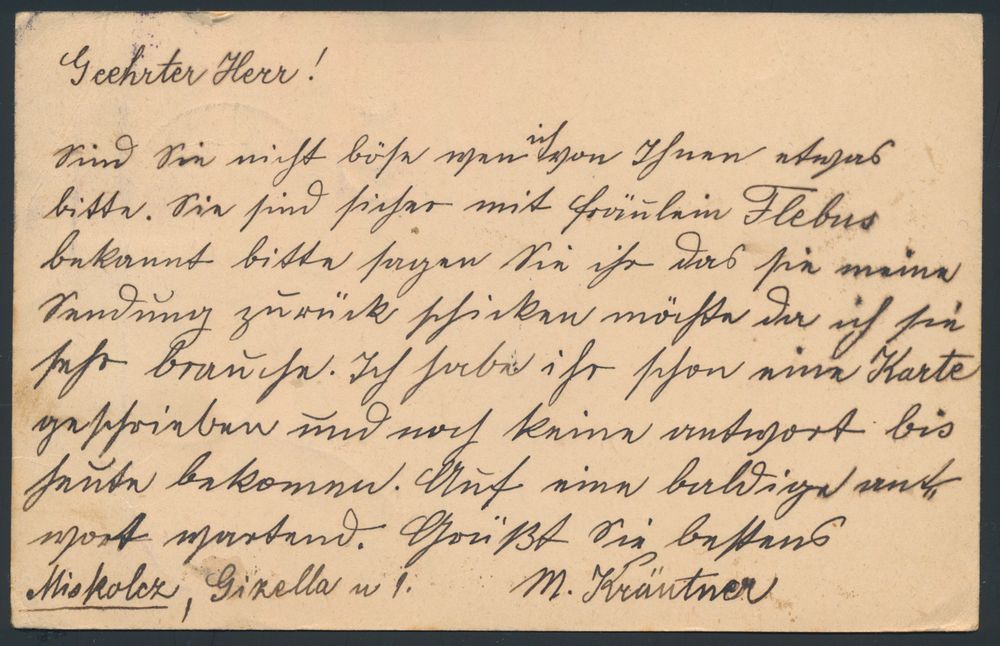 Geehrter Herr!
Sind Sie nicht böse wen ich von Ihnen etwas
bitte. Sie sind sicher mit fräulein Flebus
bekannt bitte sagen Sie ihr das sie meine
Sendung zurück schicken möchte da ich sie
sehr brauche. Ich habe ihr schon eine Karte
geschrieben und noch keine antwort bis
heute bekomen. Auf eine baldige ant„
wort wartend. Grüßt Sie bestens
Miskolcz, Gizella u 1. M. Kräutner